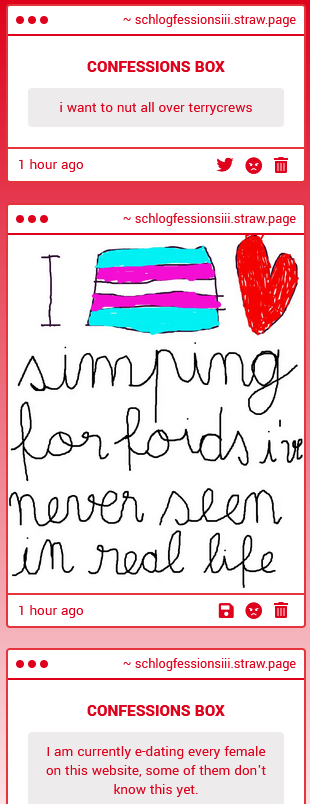 ~ schlogfessionsiii.straw.page
CONFESSIONS BOX
i want to nut all over terrycrews
1 hour ago
~ schlogfessionsiii.straw.page
I
simping
for foids i've
never seen
in real life
1 hour ago
~ schlogfessionsiii.straw.page
CONFESSIONS BOX
I am currently e-dating every female
on this website, some of them don't
know this yet.